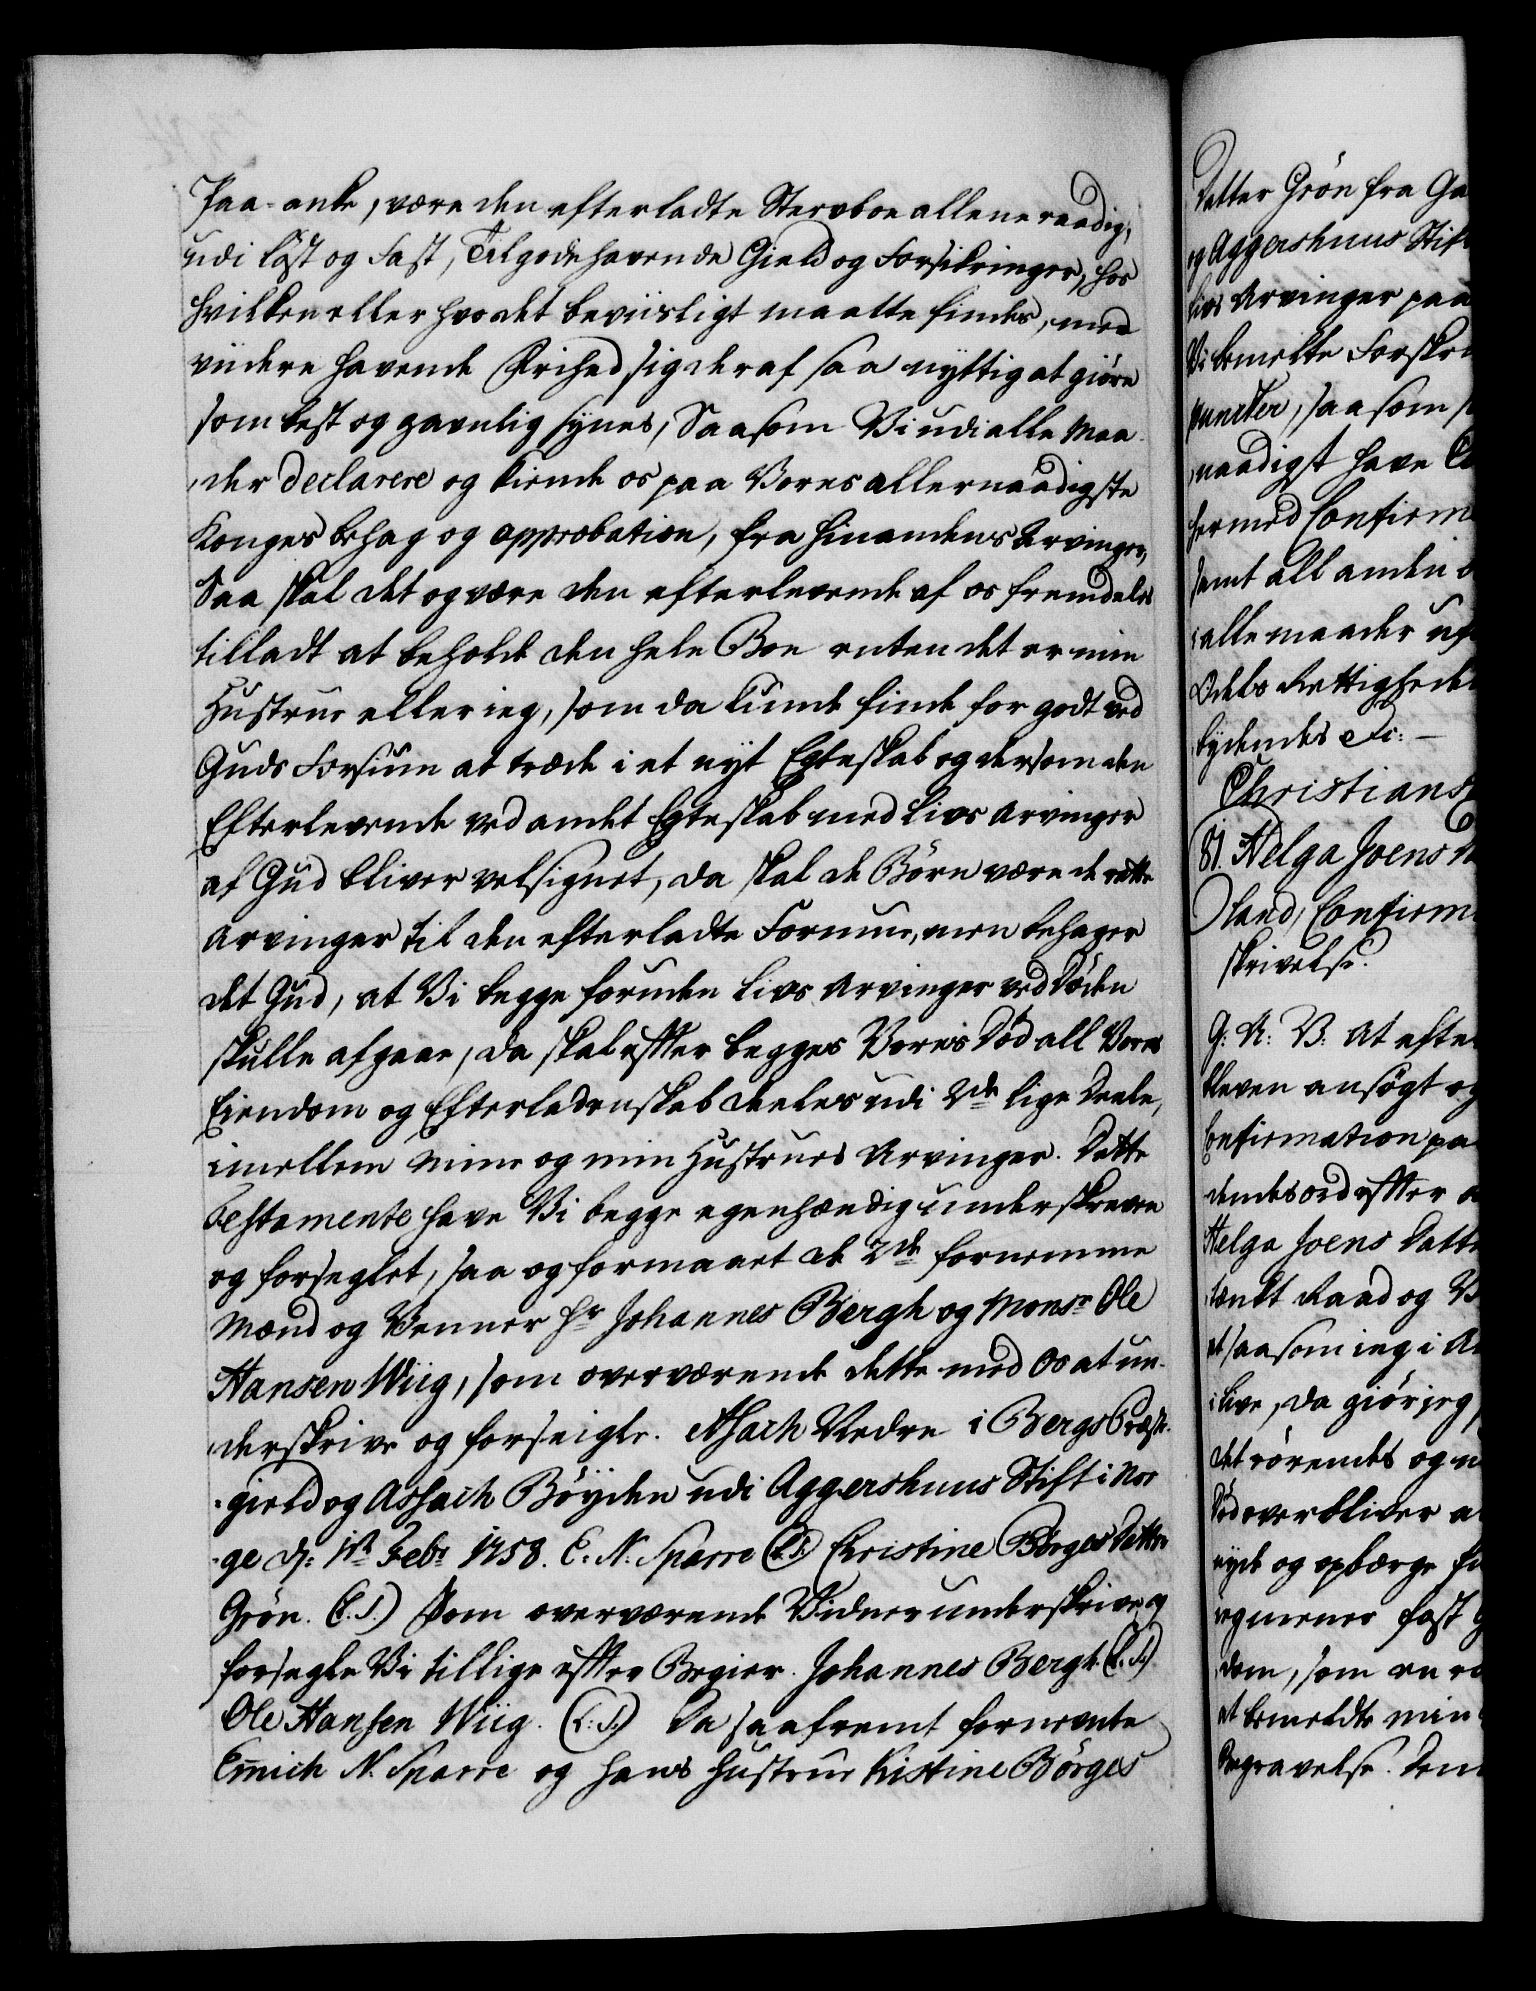 Paa-anke, være den efterladte Sterboe allene raadig,
udi løst og fast, Tilgodehavende Gield og Forsikringer, hos
hvilken eller hvor det beviisligt maatte findes, med
viidere havende Frihed sig deraf saa nyttig at giøre
som best og gavnlig synes, Saasom Vi udi alle Maa-
der declarere og kiende os paa Vores allernaadigste
Konges behag og approbation, fra hinandens Arvinger,
Saa skal det og være den efterlevende af os fremdeles
tilladt at beholde den hele Boe enten det er min
Hustrue eller ieg, som da kunde finde for godt ved
Guds Forsiun at træde i et nyt Egteskab og dersom den
Efterlevende ved andet Egteskab med Livs Arvinger
af Gud bliver velsignet, da skal de Børn være de rette
Arvinger til den efterladte Formue, men behager
det Gud, at Vi begge foruden Livs Arvinger ved Døden
skulle afgaae, da skal efter begges Voris Død all Vores
Eiendom og Efterladenskab deeles udi 2de lige Deele,
imellem mine og min Hustrues Arvinger. Dette
Testamente have Vi begge egenhændig underskreven
og forseglet, saa og formaaet de 2de fornemme
Mænd og Venner Hr Johannes Bergh og Monsr Ole
Hansen Wiig, som overværende dette med os at un-
derskrive og forseigle. Asach Nedre i Bergs Præste-
-gield og Assach Bøyden udi Aggershuus Stift i Nor
-ge d: 1st Febr 1758. E. N. Sparre (L.S.) Christine Børges Datter
Grøn. (L.S.) Som overværende Vidner underskrive og
forsegle Vi tillige efter Begier. Johannes Bergh (L.S.)
Ole Hansen Wiig. (L:S.) Da saafremt fornevnte
Emich N. Sparre og hans Hustrue Kistine Børges
Datter Grøn fra
og Aggershuus Stift
Livs Arvinger paa
Vi bemelte
puncter, saasom
naadigst have
hermed Confirm
samt all anden
i alle maader
Odels Rettighed
bydendes Etc: -
Christians
81. Helga Joens
land, Confirm
skrivelse.
G: A: V: At efter
bleven ansøgt og
Confirmation paa
dendes ord efter
Helga Joens Datter
tænkt Raad og
at saasom ieg i
i live, da giør jeg
det rørendes og
Død overbliver
nyde og opbærge
fast
dom, som
at bemeldte min
Begravelse. Dem